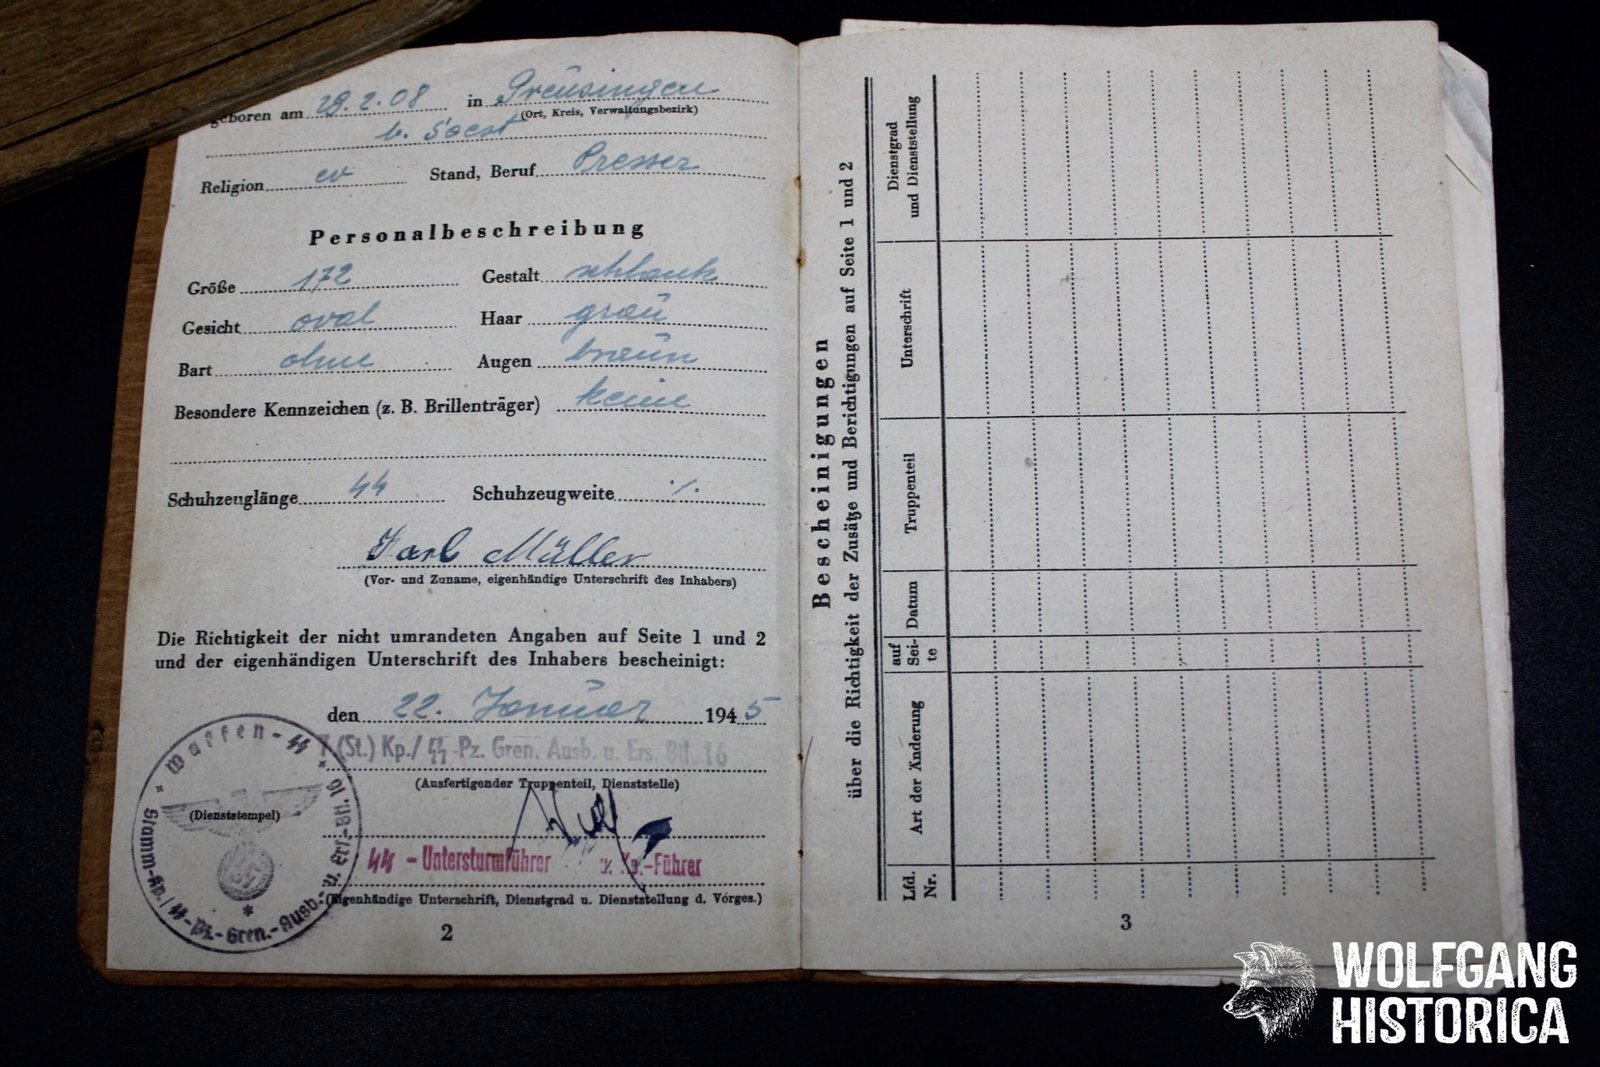 geboren am 29.2.08 in
(Ort, Kreis, Verwaltungsbezirk)
b. Soest
Religion ev Stand, Beruf Presser
Personalbeschreibung
Größe 172 Gestalt schlank
Gesicht oval Haar grau
Bart ohne Augen braun
Besondere Kennzeichen (z. B. Brillenträger) keine
Schuhzeuglänge 44 Schuhzeugweite ./.
Karl Müller
(Vor- und Zuname, eigenhändige Unterschrift des Inhabers)
Die Richtigkeit der nicht umrandeten Angaben auf Seite 1 und 2
und der eigenhändigen Unterschrift des Inhabers bescheinigt:
den 22. Januar 1945
(St.) Kp./ SS-Pz. Gren. Ausb. u. Ers. Btl. 16
(Ausfertigender Truppenteil, Dienststelle)
(Dienststempel)
* Waffen-SS *
Stamm-Kp./SS-Pz.-Gren.-Ausb.- u. Ers.-Btl. 16
SS-Untersturmführer u. Kp.-Führer
(Eigenhändige Unterschrift, Dienstgrad u. Dienststellung d. Vorges.)
2
Bescheinigungen
über die Richtigkeit der Zusätze und Berichtigungen auf Seite 1 und 2
Lfd. Nr.
Art der Änderung
auf Sei-te
Datum
Truppenteil
Unterschrift
Dienstgrad
und Dienststellung
3
WOLFGANG
HISTORICA